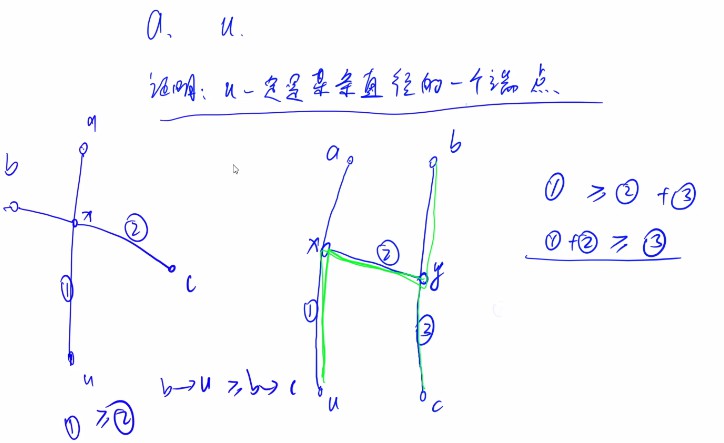 a. u.
证明：u一定是某条直径的一个端点.
a
b
x
②
①
c
u
① ≥ ②
b→u ≥ b→c
a
b
x
②
y
①
③
u
c
① ≥ ② + ③
① + ② ≥ ③